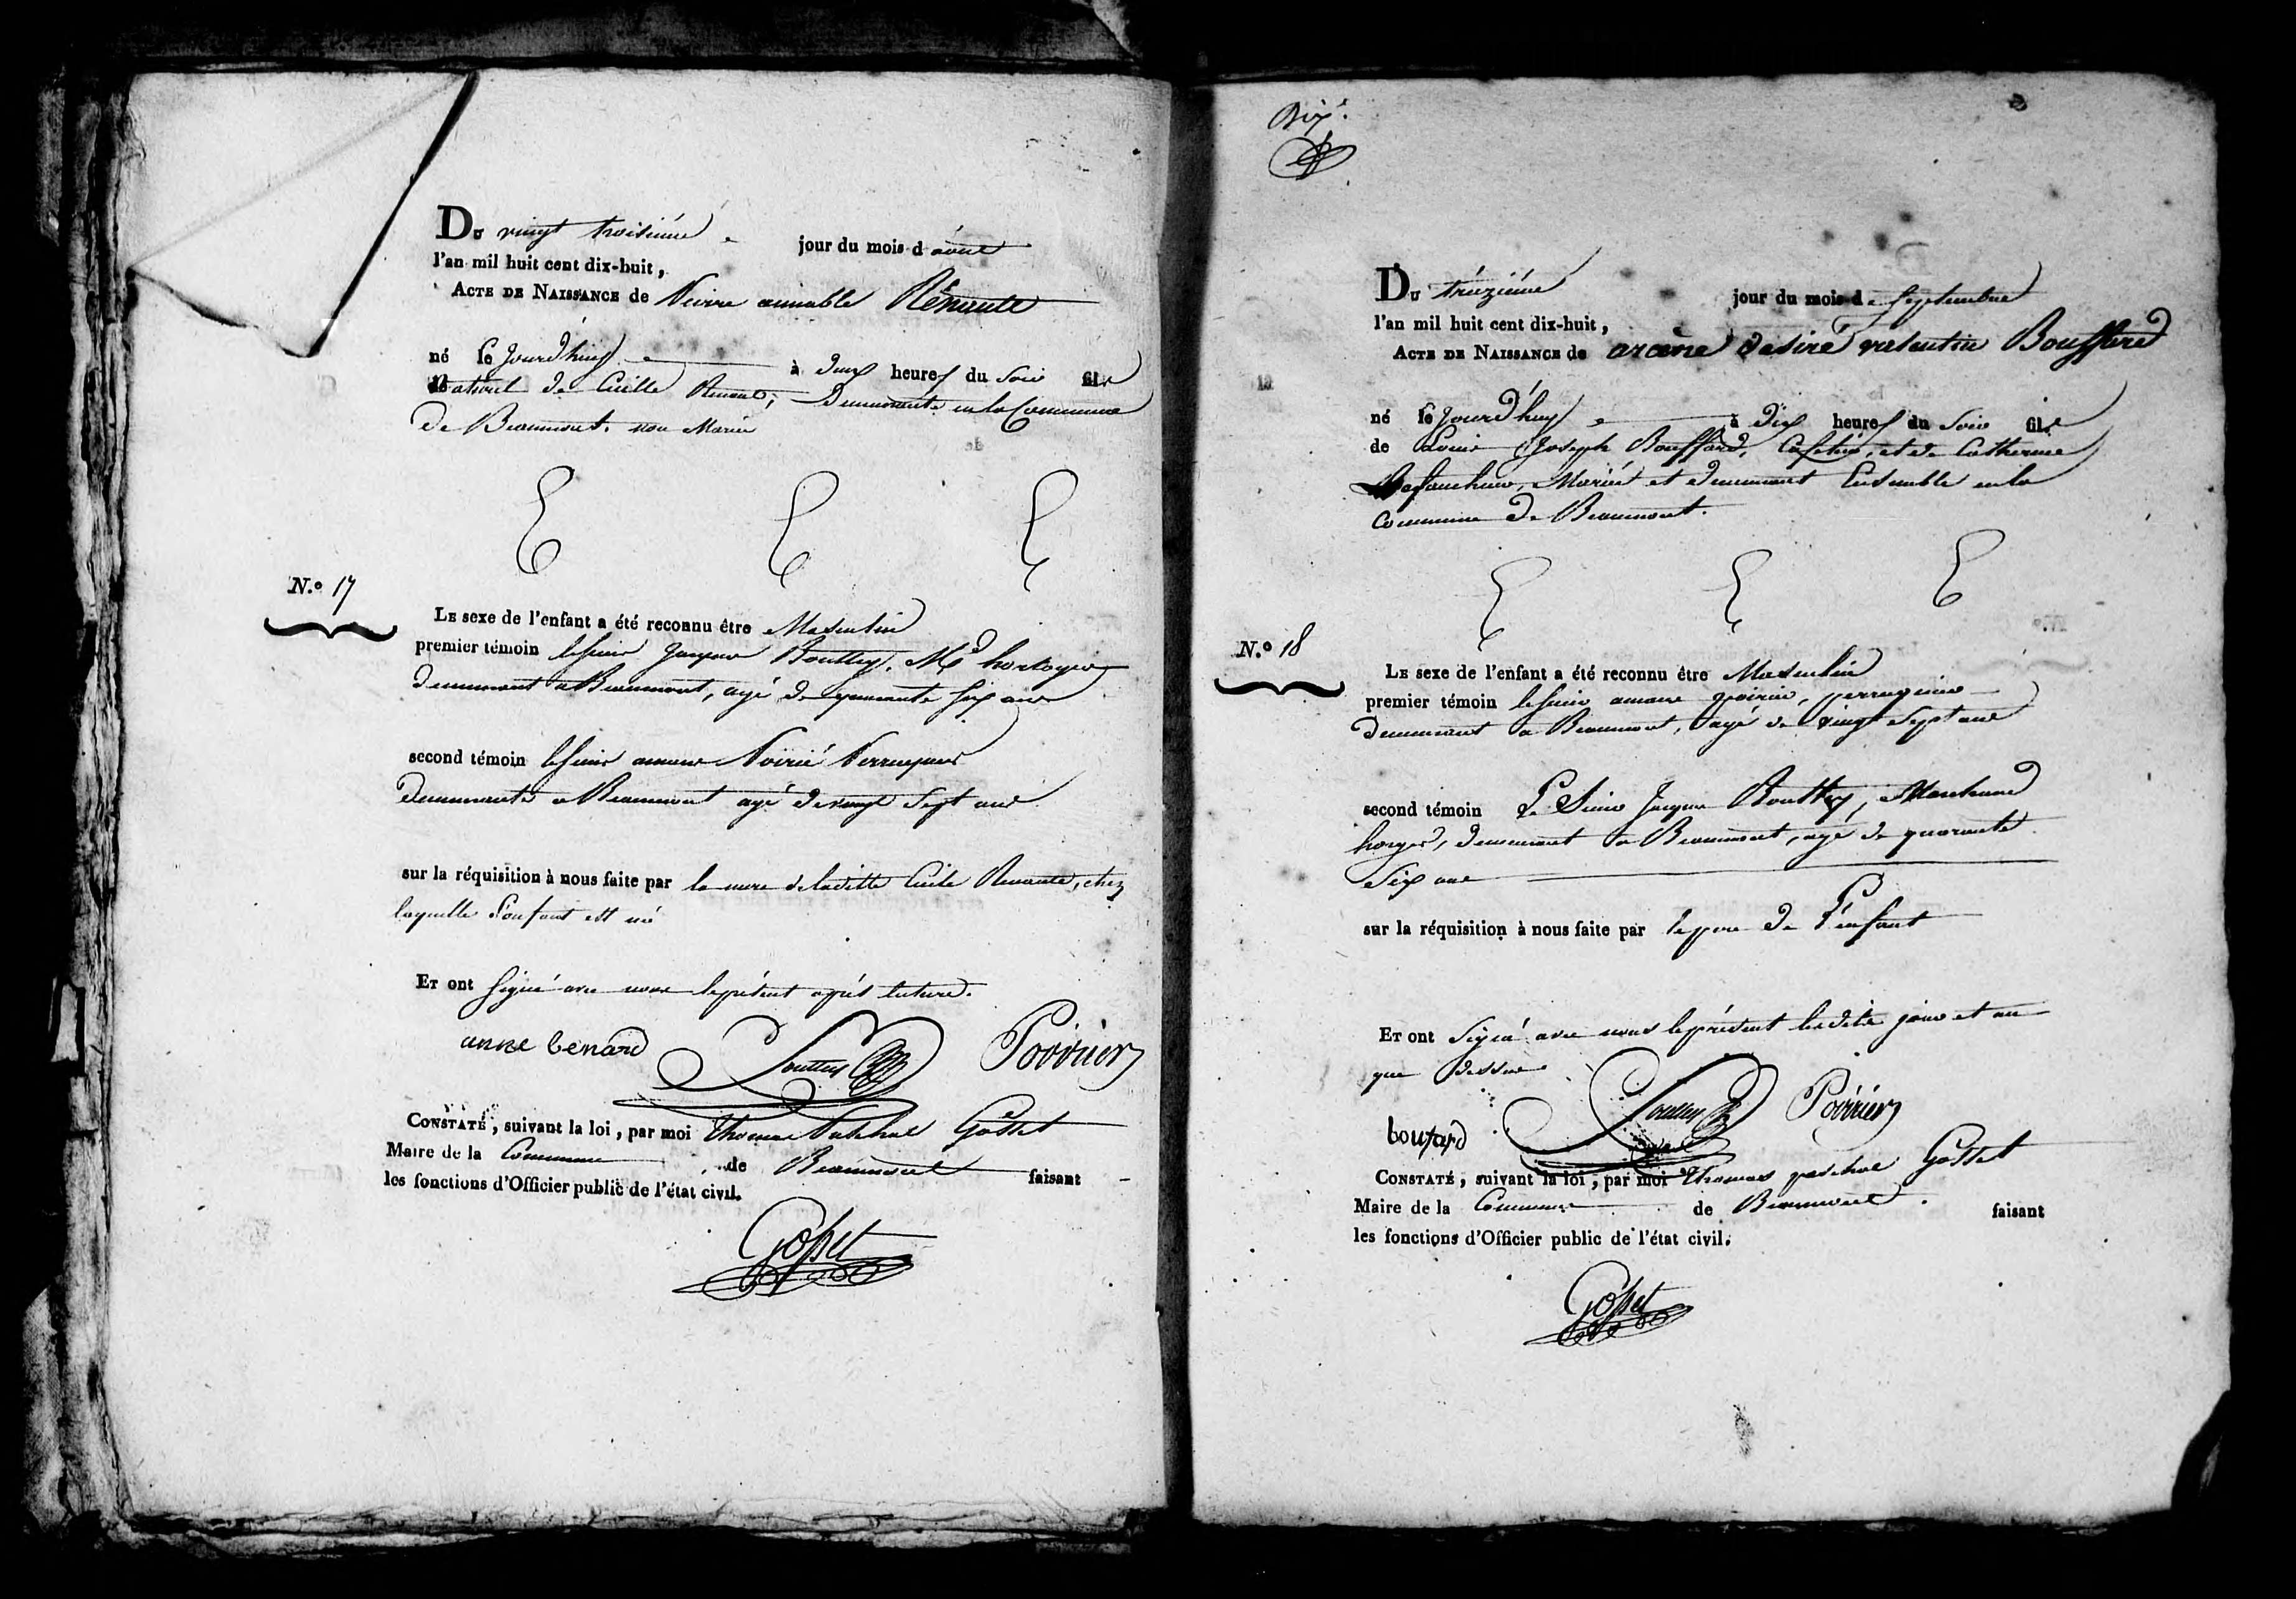 Du vingt troisième jour du mois d'aout
l'an mil huit cent dix-huit,
Acte de Naissance de Pierre aimable Rénault
né ce Jourd'huy à deux heures du Soir fils
Naturel de Cécille Renault, Demeurante en la Commune
de Beaumont. non Mariée
N.º 17
Le sexe de l'enfant a été reconnu être Masculin
premier témoin le sieur Jacques Bouttey, Md horloger
demeurant a Beaumont, agé de quarante six ans
second témoin le sieur amans Poirié Perruquier
demeurante a Beaumont agé de vingt sept ans
sur la réquisition à nous faite par la mere de laditte Cécile Renault, chez
laquelle l'enfant est né
Et ont signé avec nous le présent après lecture.
anne benard Bouttey Poirrier
Constaté, suivant la loi, par moi Thomas Paschal Gosset
Maire de la Commune de Beaumont faisant
les fonctions d'Officier public de l'état civil.
Gosset
Dix.
Du treizième jour du mois de Septembre
l'an mil huit cent dix-huit,
Acte de Naissance de arcène désiré valentin Bouffard
né ce Jourd'huy à dix heures du Soir fils
de Louis Joseph Bouffard, Cafetier, et de Catherine
Mariés et demeurant Ensemble en la
Commune de Beaumont.
N.º 18
Le sexe de l'enfant a été reconnu être Masculin
premier témoin le sieur amans poirié, perruquier
demeurant a Beaumont, agé de vingt Sept ans
second témoin Le Sieur Jacques Bouttey, Marchand
horloger, demeurant a Beaumont, agé de quarante
Six ans
sur la réquisition à nous faite par le pere de l'enfant
Et ont Signé avec nous le présent lesdits jour et an
que dessus
boufard Bouttey Poirrier
Constaté, suivant la loi, par moi Thomas paschal Gosset
Maire de la Commune de Beaumont faisant
les fonctions d'Officier public de l'état civil.
Gosset